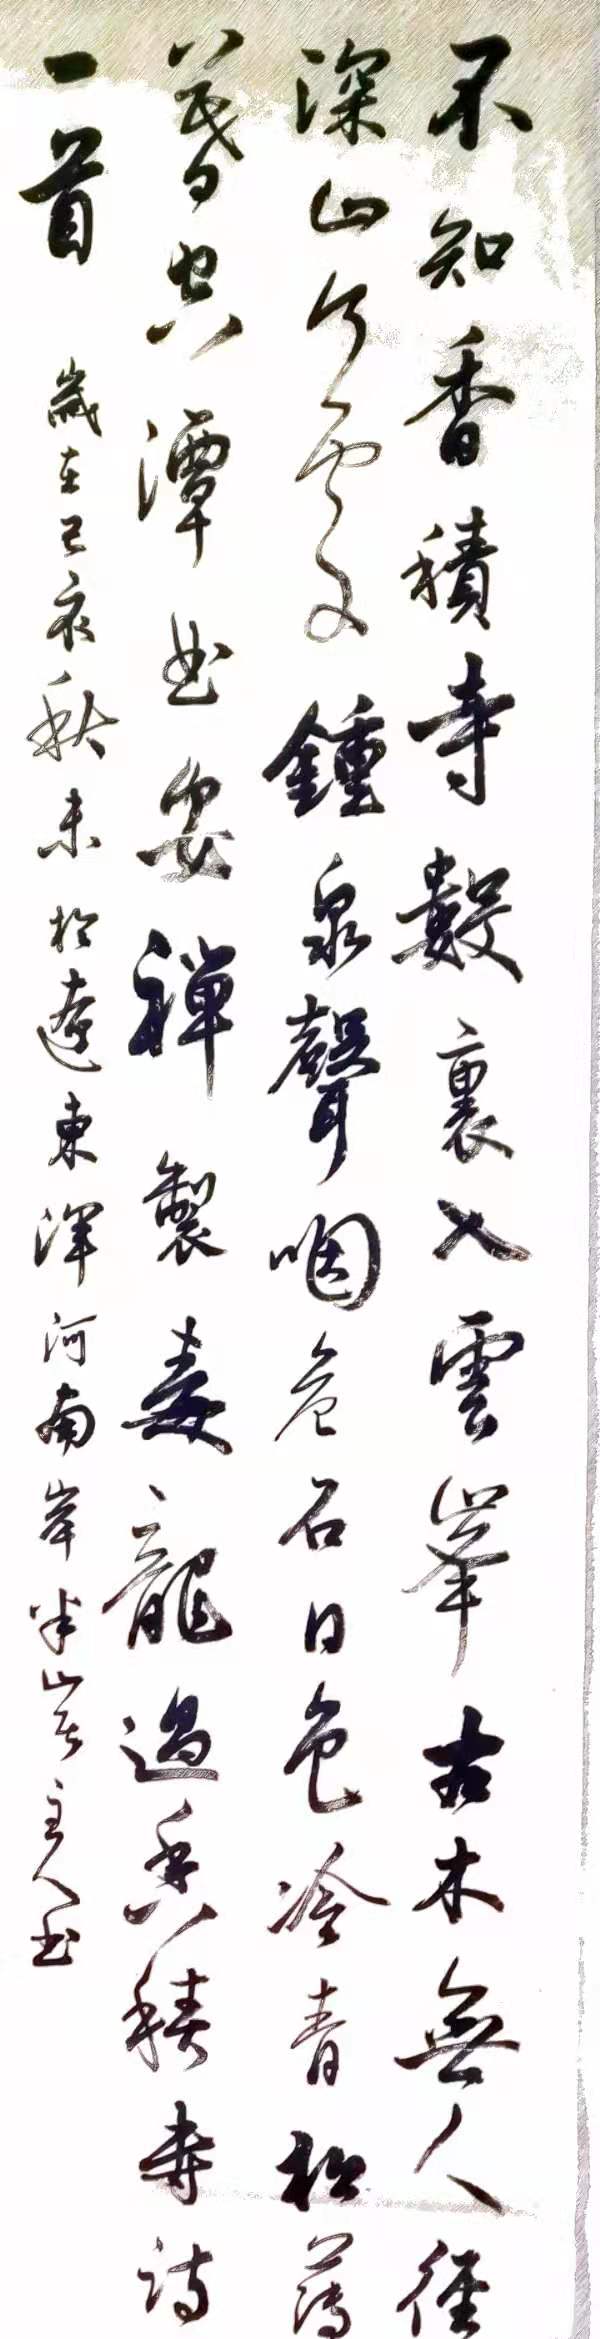 不知香積寺數裏入雲峯古木無人徑
深山何處鍾泉聲咽危石日色冷青松薄
暮空潭曲安禪製毒龍過香積寺詩
一首 歲在己亥秋末於遼東渾河南岸半山居主人書